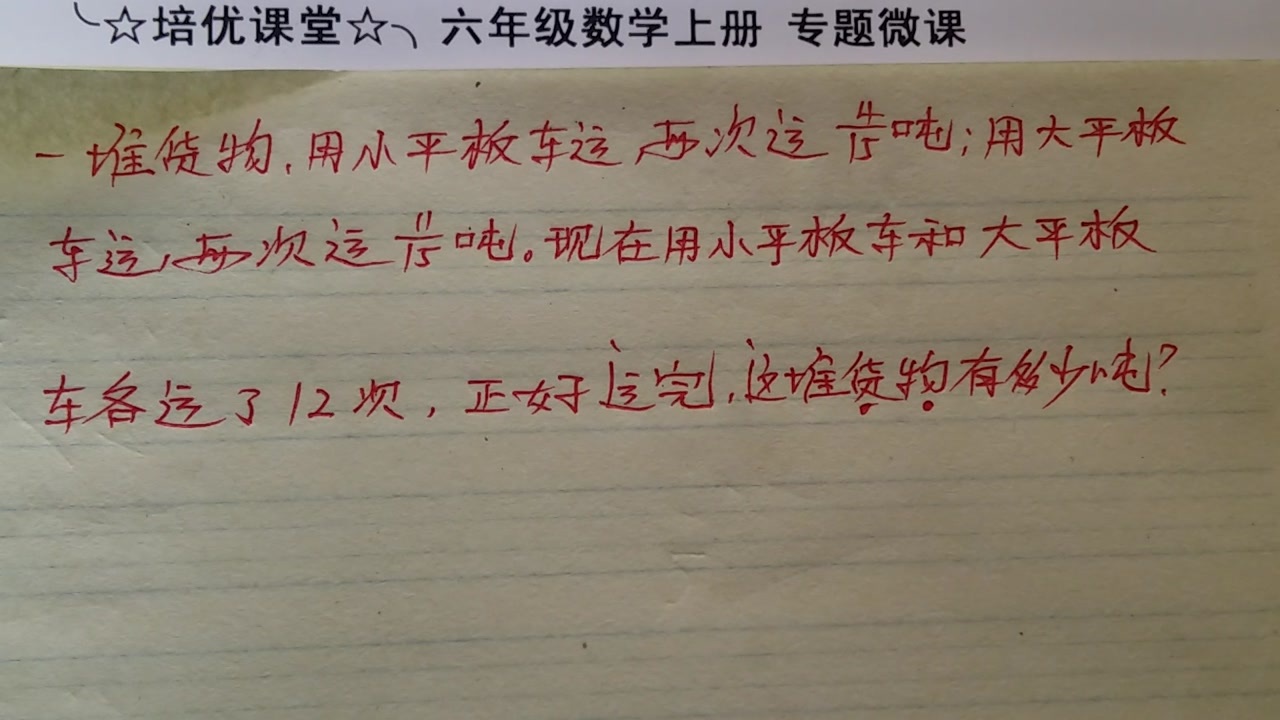 ☆培优课堂☆ 六年级数学上册 专题微课
一堆货物,用小平板车运,每次运4/15吨;用大平板
车运,每次运11/15吨。现在用小平板车和大平板
车各运了12次,正好运完,这堆货物有多少吨?